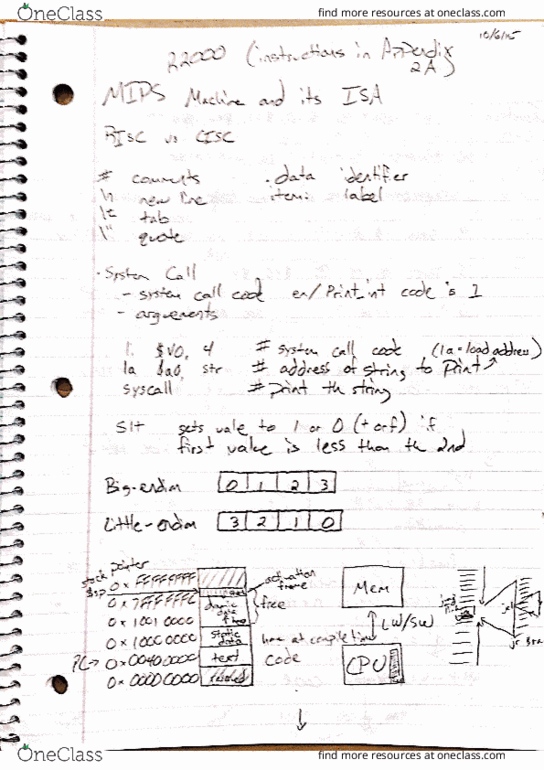 OneClass
find more resources at oneclass.com
10/6/15
22000 (instructions in Appendix 2A)
MIPS Machine and its ISA
RISC vs CISC
# comments .data identifier
\n new line item: label
\t tab
\" quote
· System Call
- system call code ex/ Print_int code is 1
- arguements
li $v0, 4 # system call code (la = load address)
la $a0, str # address of string to Print
syscall # print th string
Slt sets vale to 1 or 0 (t or f) if
first value is less than th 2nd
Big-endian 0 1 2 3
Little-endian 3 2 1 0
stack pointer
$sp→ 0x FFFFFFFF
0x 7FFFFFFC
activation frame
dynamic data
free
Mem
0x 1001 0000
0x 1000 0000 static data
LW/SW
PC→ 0x 0040 0000 text code
CPU
0x 0000 0000
OneClass
find more resources at oneclass.com